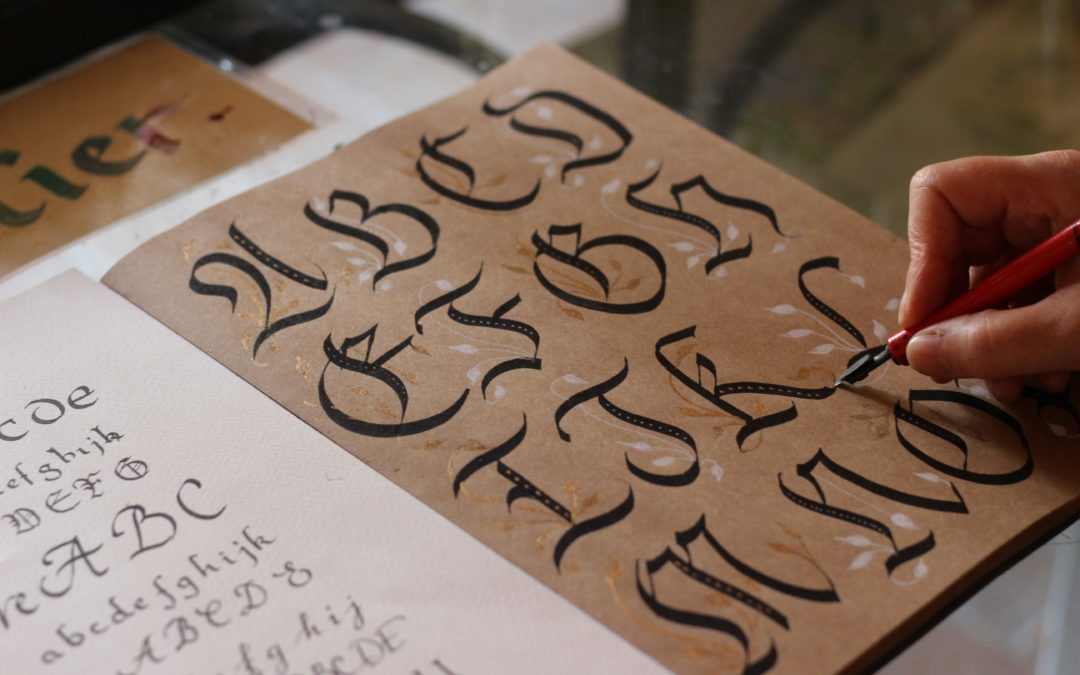 ier
A B C D
E F G H
I J K L
M N O
c d e
efghijk
D E F G
A B C
abcdefghijk
A B C D E
fg hij
C D E